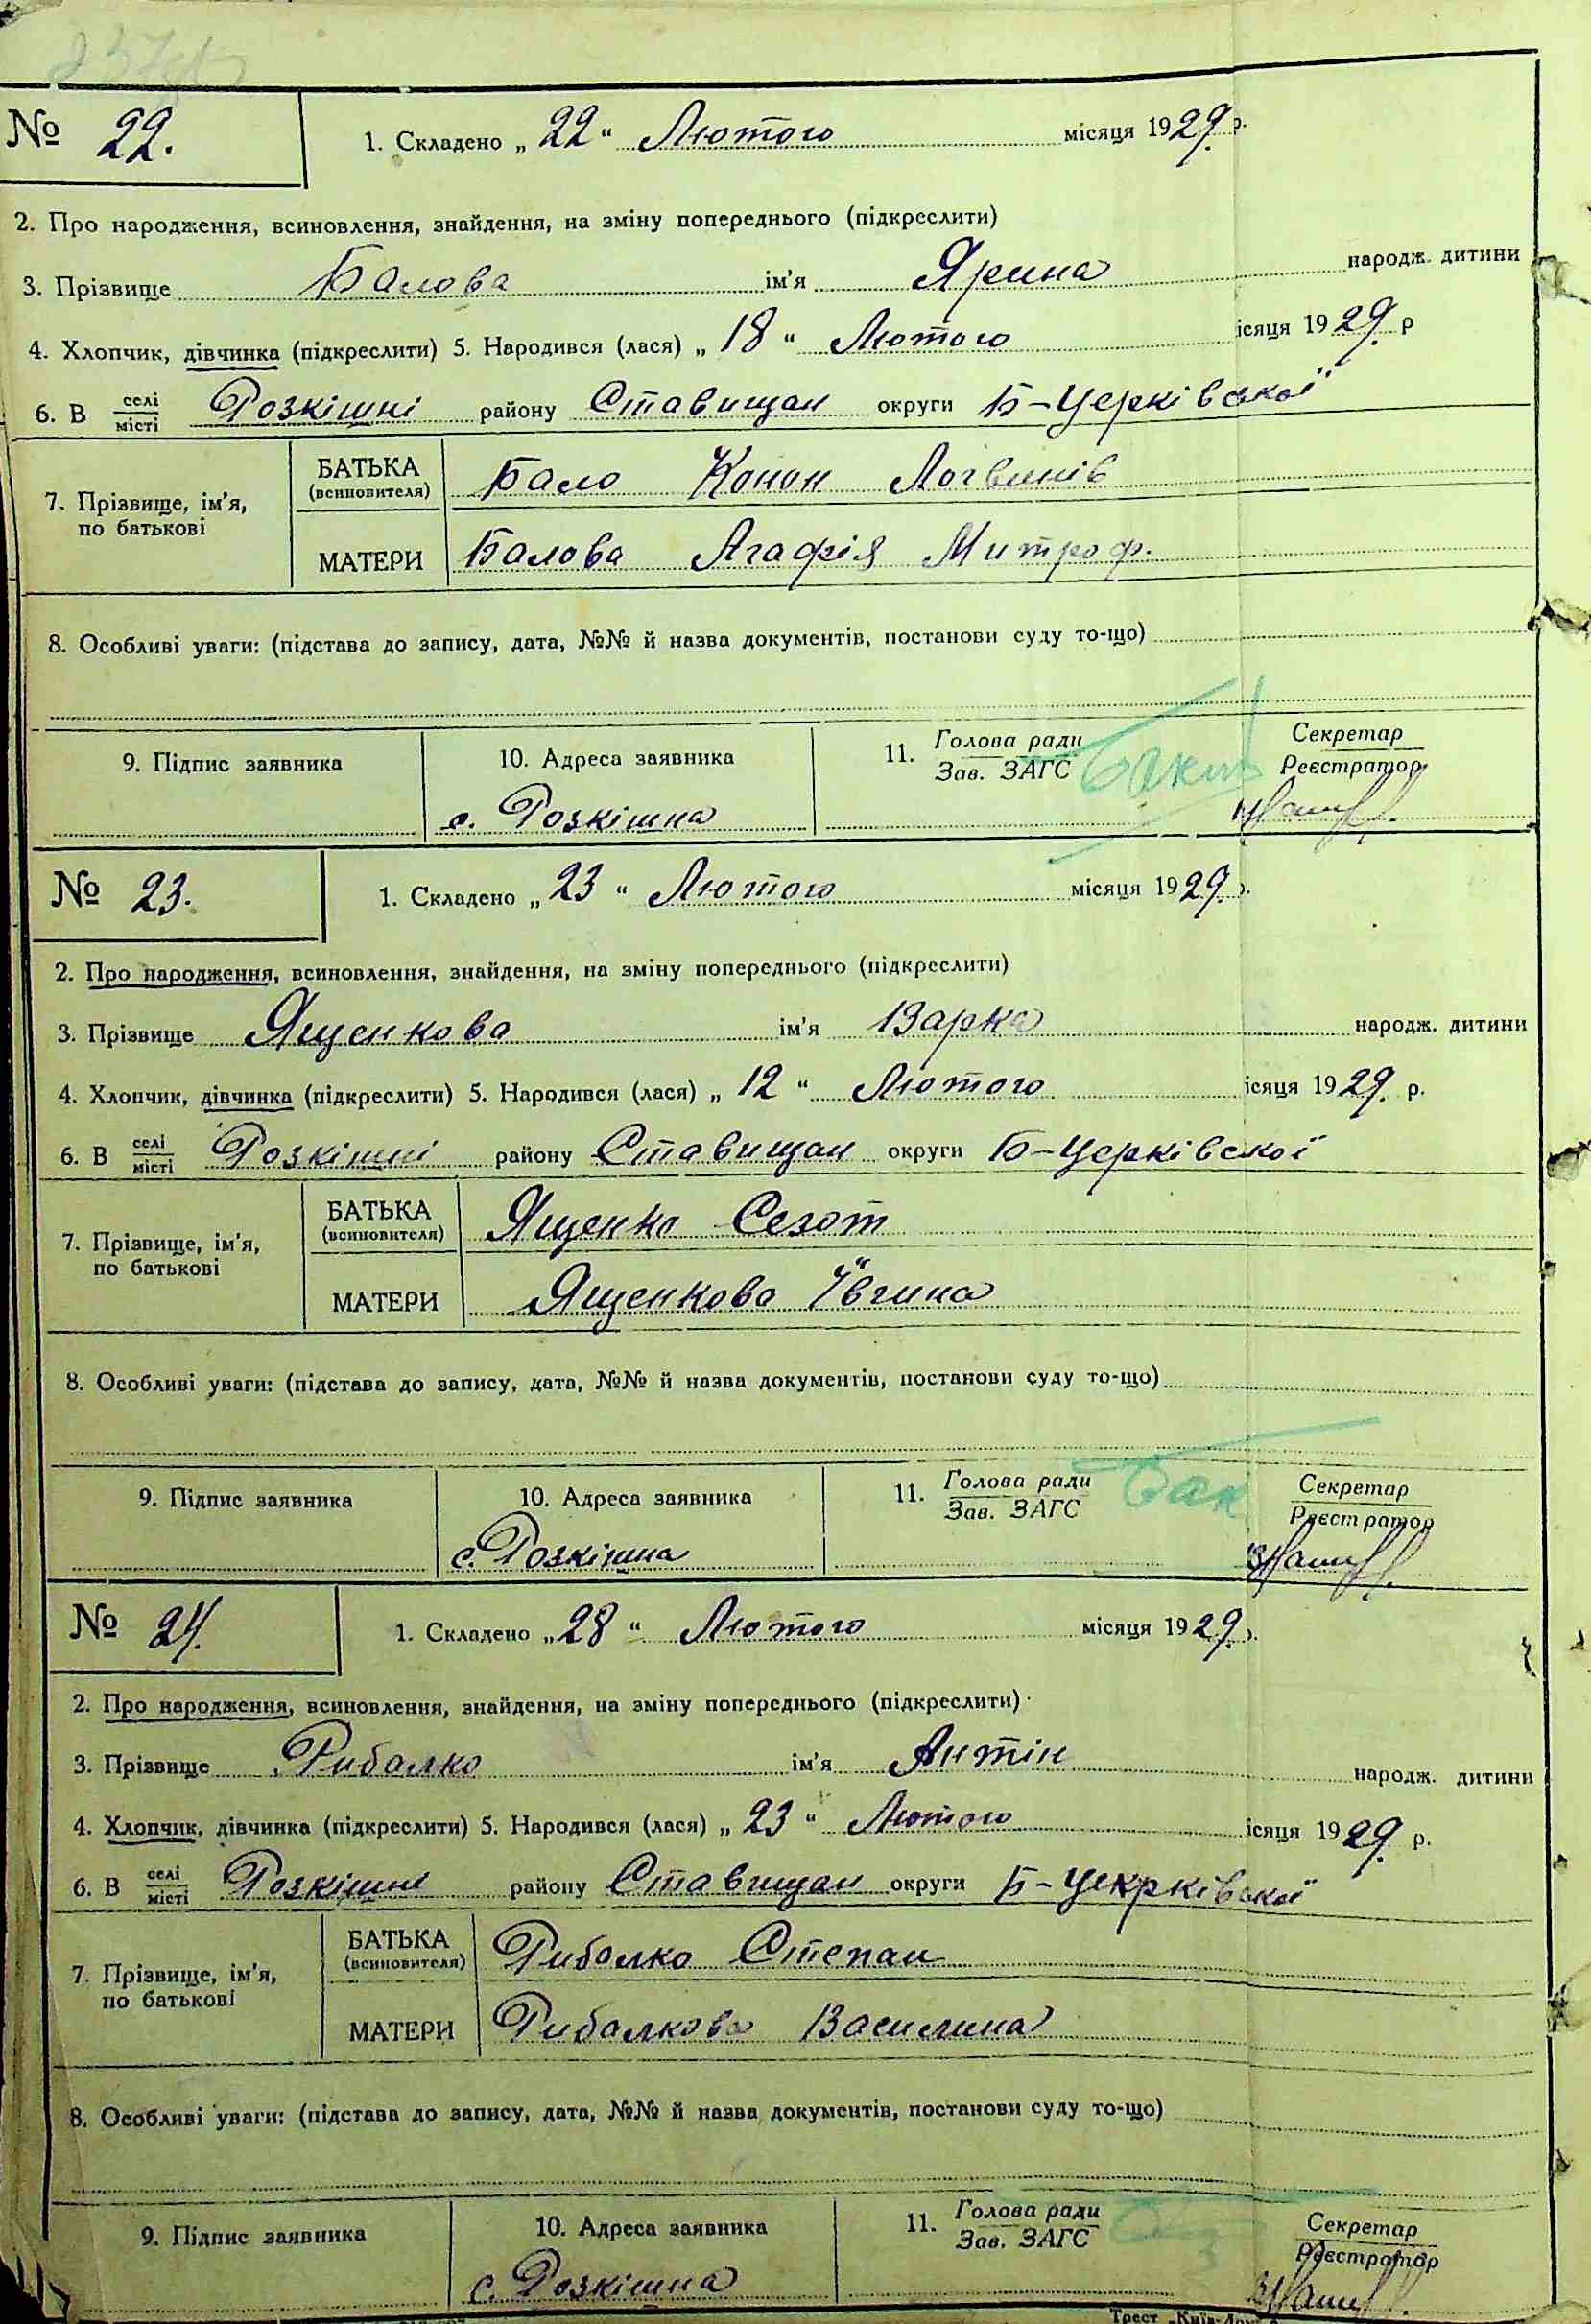 № 22.
1. Складено „22“ Лютого місяця 1929 р.
2. Про народження, всиновлення, знайдення, на зміну попереднього (підкреслити)
3. Прізвище Балова ім'я Ярина народж. дитини
4. Хлопчик, дівчинка (підкреслити) 5. Народився (лася) „18“ Лютого ісяця 1929 р
6. В селі/місті Розкішні району Ставищан округи Б-Церківської
7. Прізвище, ім'я, по батькові
БАТЬКА (всиновителя) Бало Конон Логвинів
МАТЕРИ Балова Агафія Митроф.
8. Особливі уваги: (підстава до запису, дата, №№ й назва документів, постанови суду то-що)
9. Підпис заявника
10. Адреса заявника
с. Розкішна
11. Голова ради
Зав. ЗАГС
Секретар
Реєстратор
№ 23.
1. Складено „23“ Лютого місяця 1929 р.
2. Про народження, всиновлення, знайдення, на зміну попереднього (підкреслити)
3. Прізвище Ященкова ім'я Варка народж. дитини
4. Хлопчик, дівчинка (підкреслити) 5. Народився (лася) „12“ Лютого ісяця 1929. р.
6. В селі/місті Розкішні району Ставищан округи Б-Церківської
7. Прізвище, ім'я, по батькові
БАТЬКА (всиновителя) Ященко Сезот
МАТЕРИ Ященкова Ївгина
8. Особливі уваги: (підстава до запису, дата, №№ й назва документів, постанови суду то-що)
9. Підпис заявника
10. Адреса заявника
с. Розкішна
11. Голова ради
Зав. ЗАГС
Секретар
Реєстратор
№ 24.
1. Складено „28“ Лютого місяця 1929.
2. Про народження, всиновлення, знайдення, на зміну попереднього (підкреслити)
3. Прізвище Рибалко ім'я Антін народж. дитини
4. Хлопчик, дівчинка (підкреслити) 5. Народився (лася) „23“ Лютого ісяця 1929. р.
6. В селі/місті Розкішні району Ставищан округи Б-Цекрківської
7. Прізвище, ім'я, по батькові
БАТЬКА (всиновителя) Рибалко Степан
МАТЕРИ Рибалкова Василина
8. Особливі уваги: (підстава до запису, дата, №№ й назва документів, постанови суду то-що)
9. Підпис заявника
10. Адреса заявника
с. Розкішна
11. Голова ради
Зав. ЗАГС
Секретар
Реєстратор
Трест „Київ-